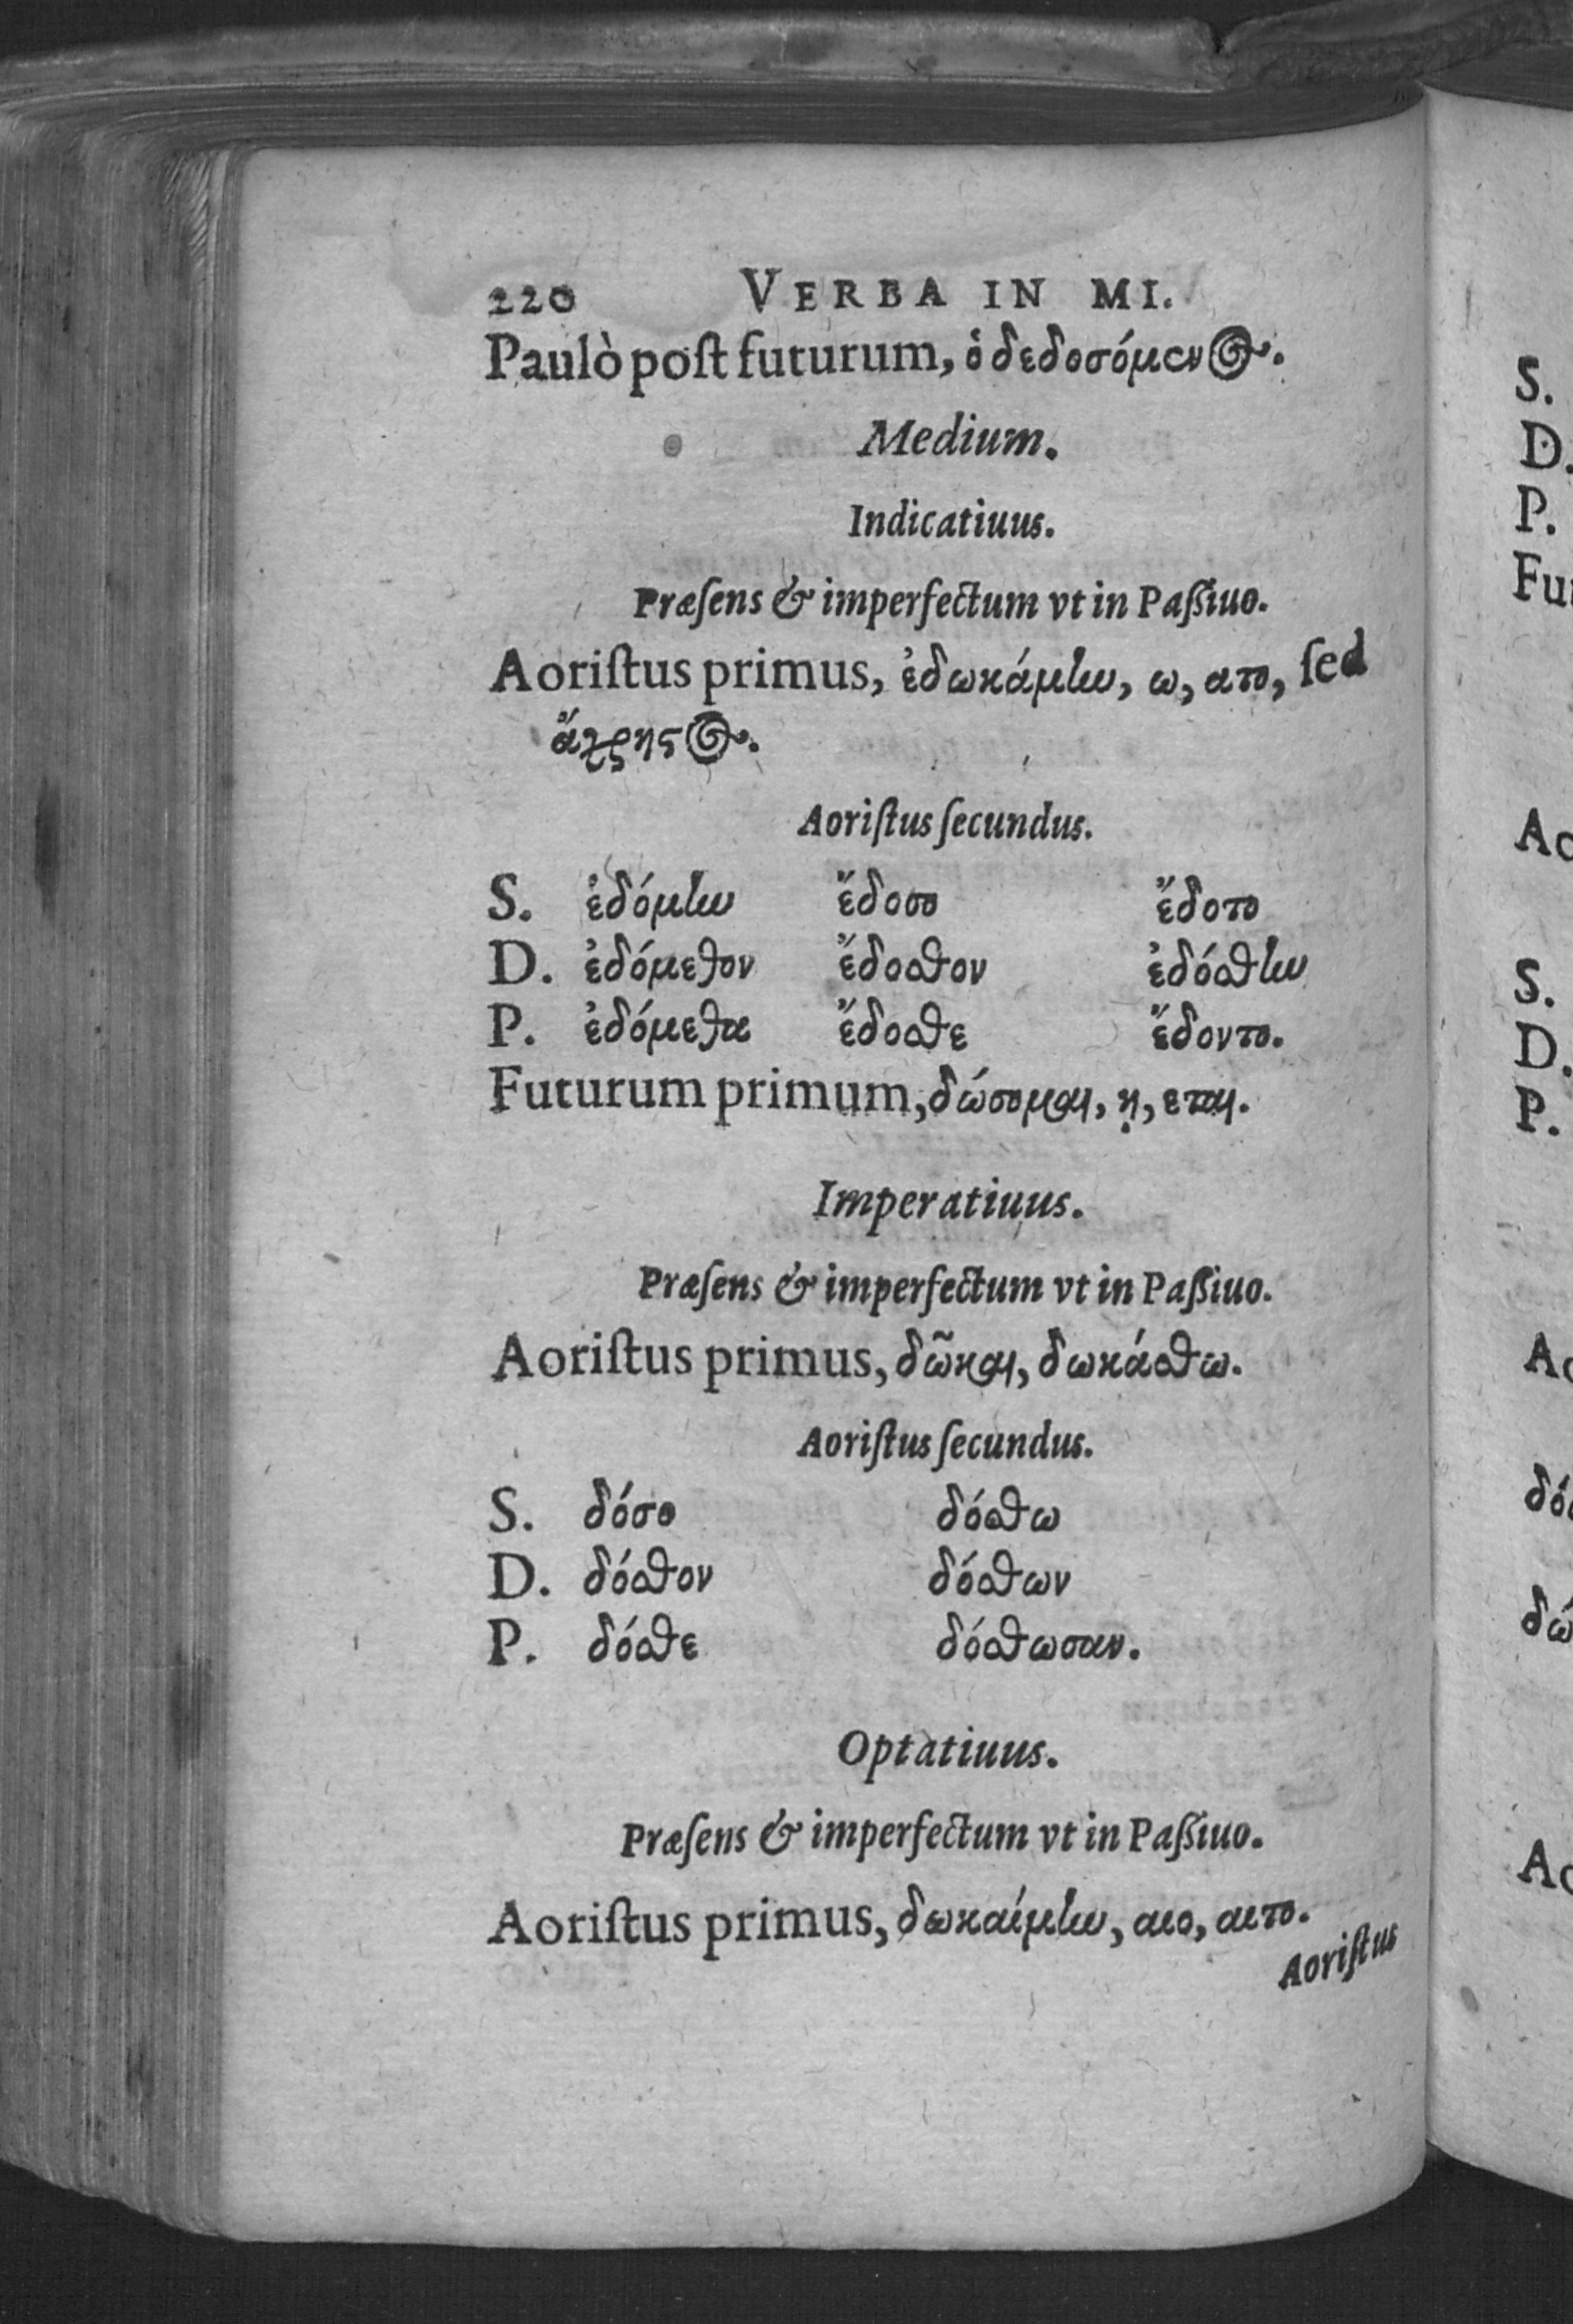 220 VERBA IN MI.
Paulò poſt futurum, ὁ δεδοσόμενος.
Medium.
Indicatiuus.
Præſens & imperfectum vt in Paſſiuo.
Aoriſtus primus, ἐδωκάμην, ω, ατο, ſed
ἄχρηςος.
Aoriſtus ſecundus.
S. ἐδόμην ἔδοσο ἔδοτο
D. ἐδόμεθον ἔδοσθον ἐδόσθην
P. ἐδόμεθα ἔδοσθε ἔδοντο.
Futurum primum, δώσομαι, ῃ, εται.
Imperatiuus.
Præſens & imperfectum vt in Paſſiuo.
Aoriſtus primus, δῶκαι, δωκάσθω.
Aoriſtus ſecundus.
S. δόσο δόσθω
D. δόσθον δόσθων
P. δόσθε δόσθωσαν.
Optatiuus.
Præſens & imperfectum vt in Paſſiuo.
Aoriſtus primus, δωκαίμην, αιο, αιτο.
Aoriſtus
S.
D.
P.
S.
D.
P.